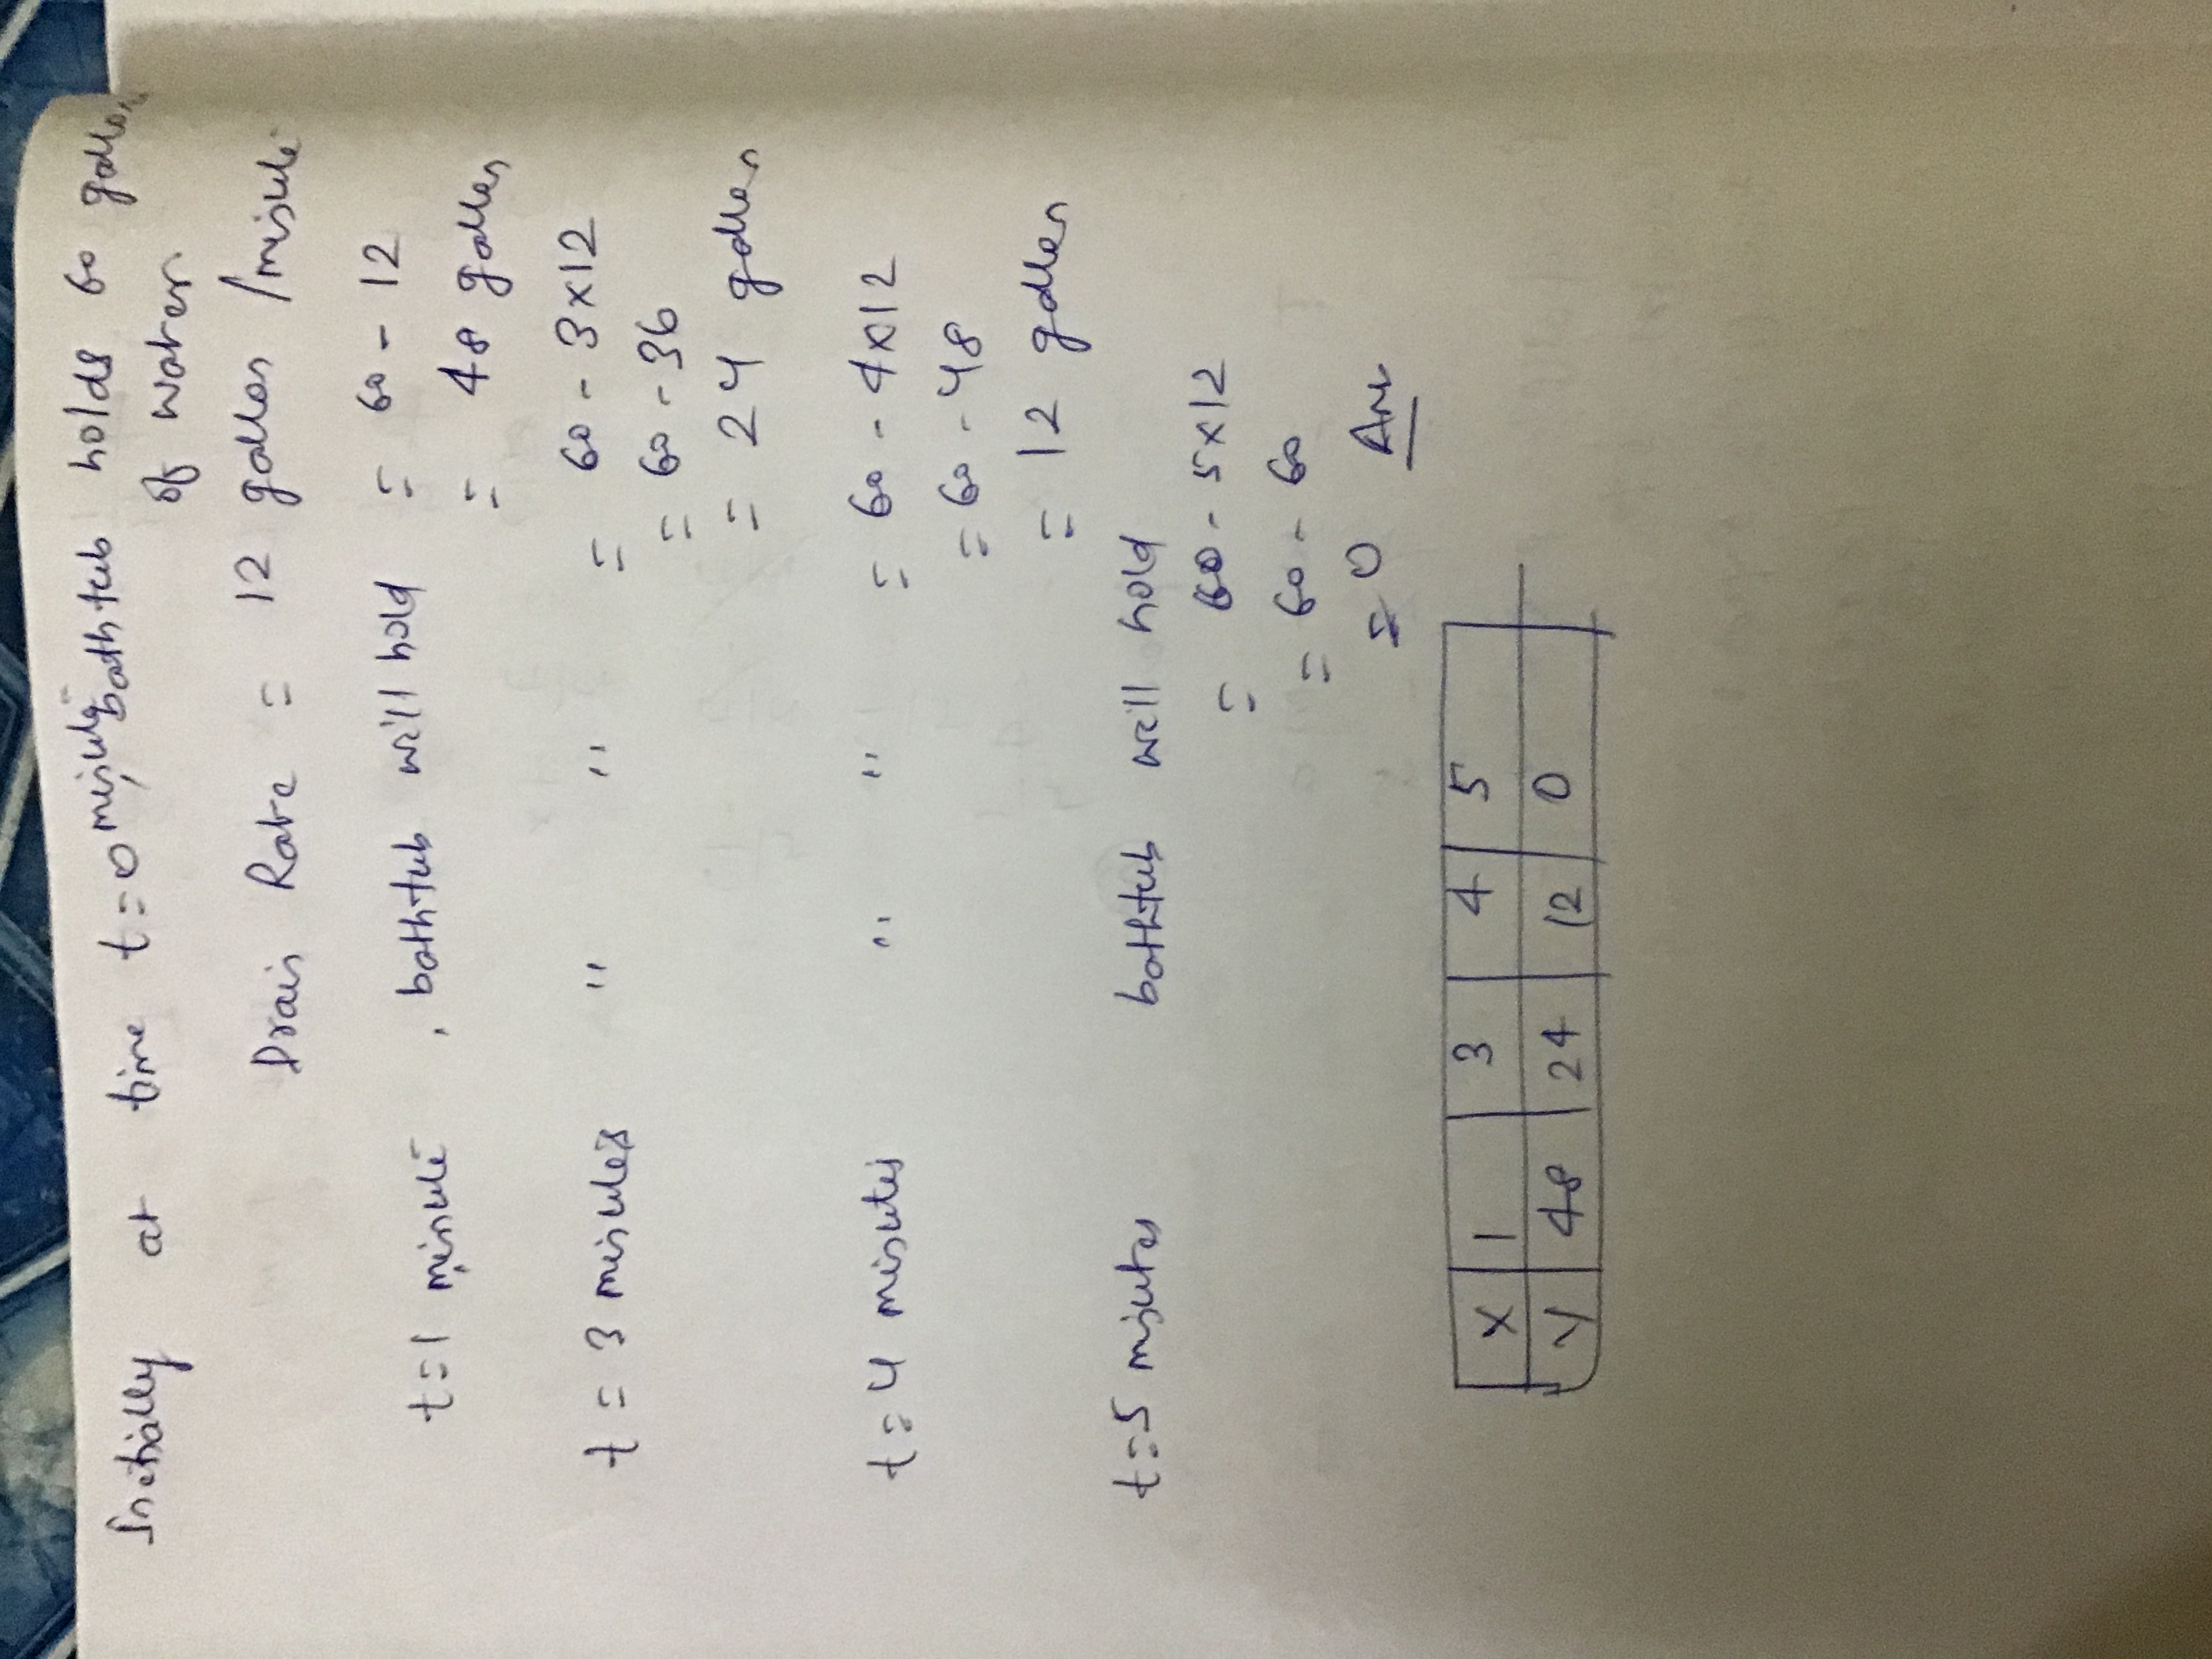 Initially at time t=0 minute, bathtub holds 60 gallon
of water.
Drain Rate = 12 gallon /minute
t=1 minute , bathtub will hold = 60 - 12
= 48 gallon
t = 3 minutes " " = 60 - 3x12
= 60 - 36
= 24 gallon
t=4 minutes " " = 60 - 4x12
= 60 - 48
= 12 gallon
t=5 minutes bathtub will hold
= 60 - 5x12
= 60 - 60
= 0 Ans
X 1 3 4 5
Y 48 24 12 0